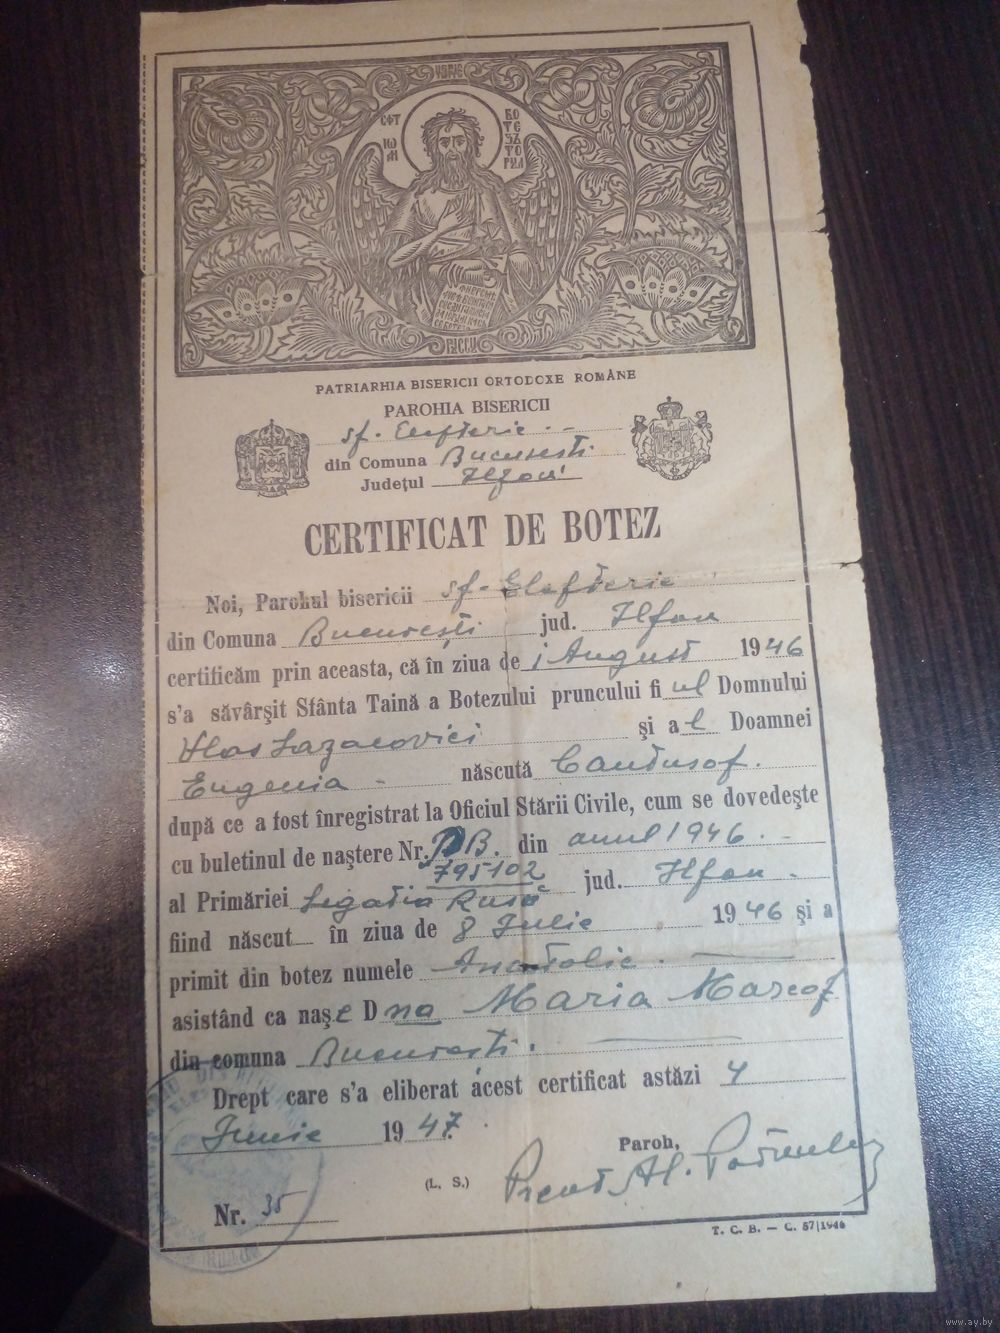 СФТ
ІѠАН
БОТЕЗЪТОРУЛ
PATRIARHIA BISERICII ORTODOXE ROMÂNE
PAROHIA BISERICII
sf. Elefterie
din Comuna Bucuresti
Județul Ilfov
CERTIFICAT DE BOTEZ
Noi, Parohul bisericii sf. Elefterie
din Comuna București jud. Ilfov
certificăm prin aceasta, că în ziua de 1 August 1946
s'a săvârșit Sfânta Taină a Botezului pruncului fi ul Domnului
Vlas Lazacovici și a l Doamnei
Eugenia născută Cantusof.
după ce a fost înregistrat la Oficiul Stării Civile, cum se dovedește
cu buletinul de naștere Nr. B. din anul 1946.
795102
al Primăriei Legatia Rusă jud. Ilfov
fiind născut în ziua de 8 Iulie 1946 și a
primit din botez numele Anatolie.
asistând ca naș e D na Maria
din comuna Bucuresti.
Drept care s'a eliberat acest certificat astăzi 4
Iunie 1947.
Paroh,
(L. S.)
Preot Al.
Nr. 35
T. C. B. — C. 57|1946
www.ay.by